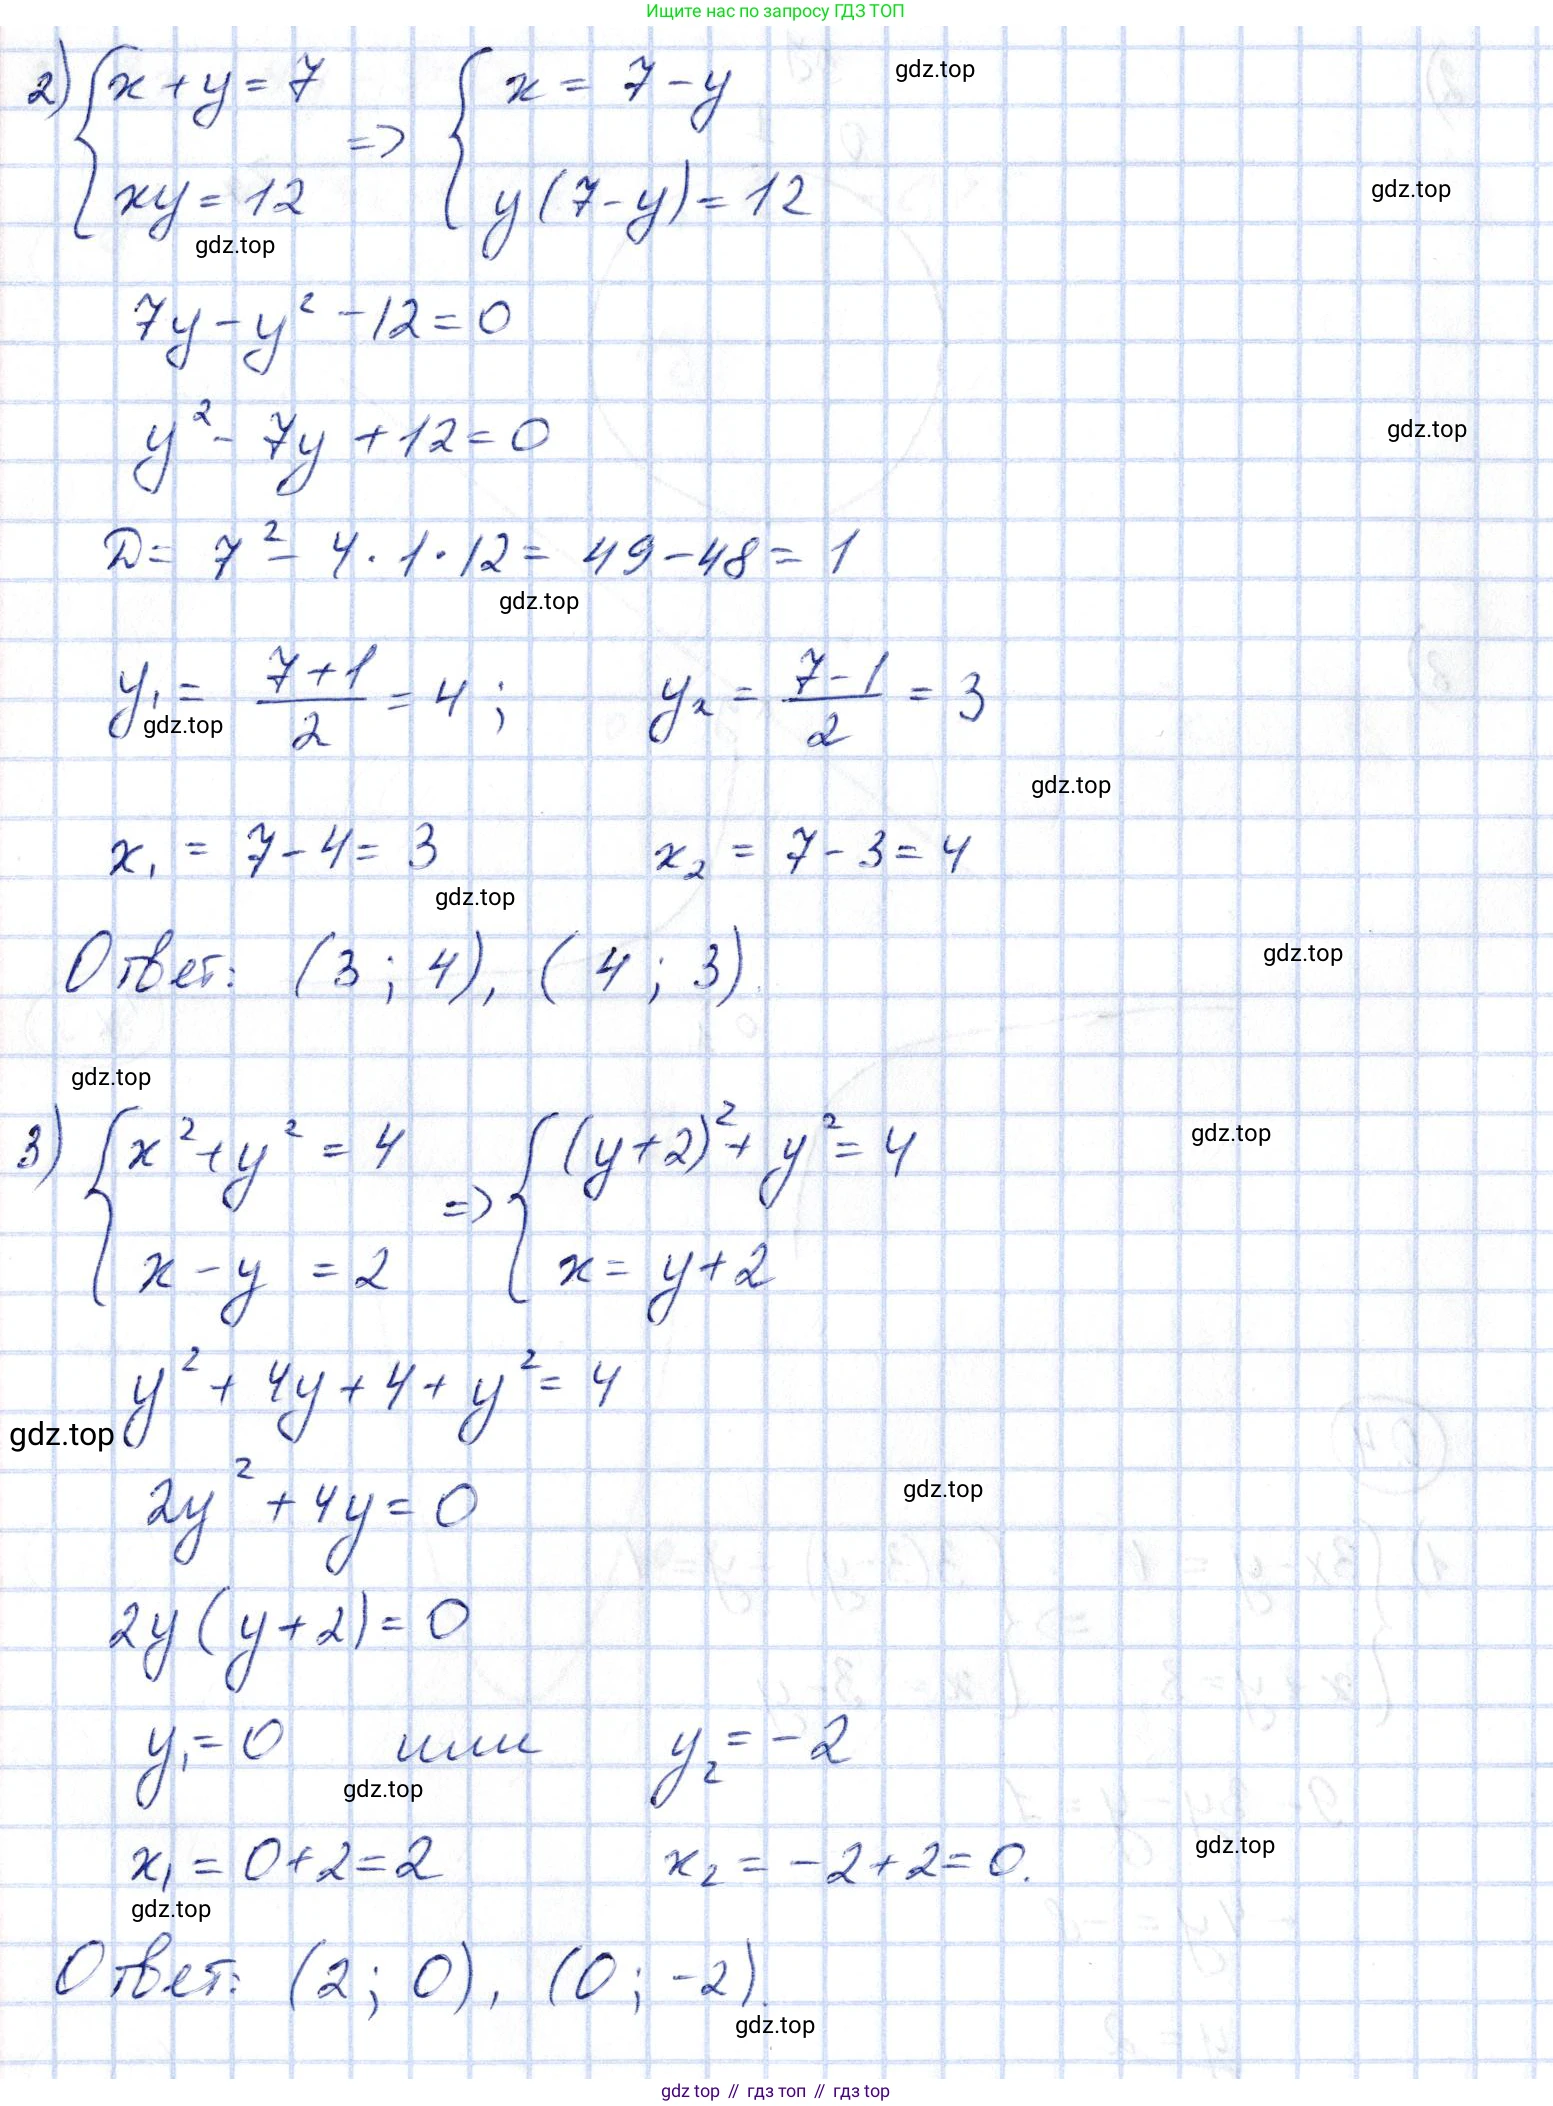 Ищите нас по запросу ГДЗ ТОП
2) { x + y = 7 => { x = 7 - y
gdz.top
xy = 12 y(7 - y) = 12
gdz.top
gdz.top
7y - y² - 12 = 0
y² - 7y + 12 = 0
gdz.top
D = 7² - 4 · 1 · 12 = 49 - 48 = 1
gdz.top
y₁ = (7+1)/2 = 4 ; y₂ = (7-1)/2 = 3
gdz.top
gdz.top
x₁ = 7 - 4 = 3 x₂ = 7 - 3 = 4
gdz.top
Ответ: (3 ; 4), (4 ; 3).
gdz.top
gdz.top
3) { x² + y² = 4 => { (y+2)² + y² = 4
gdz.top
x - y = 2 x = y + 2
y² + 4y + 4 + y² = 4
gdz.top
2y² + 4y = 0
gdz.top
2y(y+2) = 0
y₁ = 0 или y₂ = -2
gdz.top
x₁ = 0 + 2 = 2 x₂ = -2 + 2 = 0.
gdz.top
gdz.top
Ответ: (2 ; 0), (0 ; -2).
gdz.top
gdz top // гдз топ // гдз top